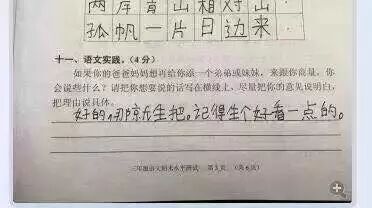 两岸青山相对出
孤帆一片日边来.
十一、语文实践。（4 分）
如果你的爸爸妈妈想再给你添一个弟弟或妹妹，来跟你商量，你
会说些什么？请把你想要说的话写在横线上，尽量把你的意见说明白，
把理由说具体。
好的,那就生把。记得生个好看一点的。
三年级语文期末水平测试 第5页 （共6页）